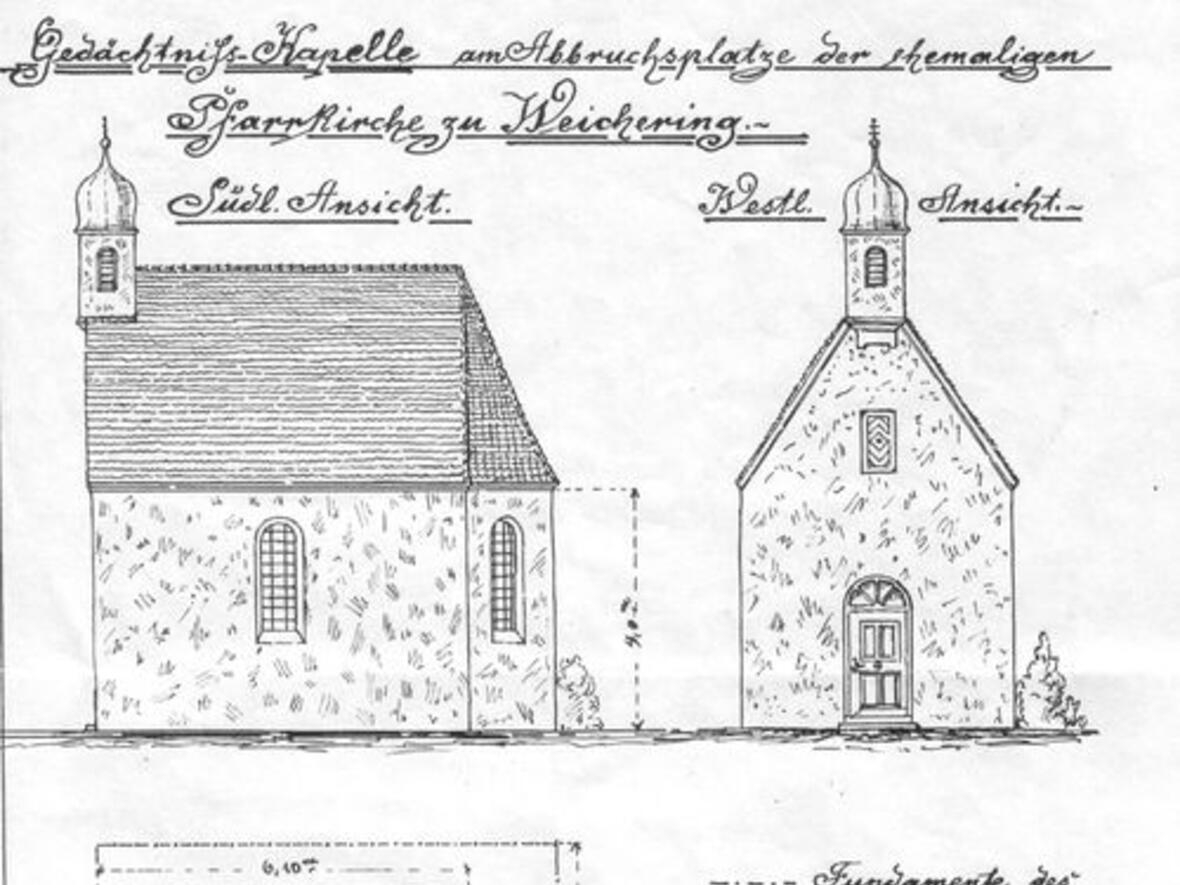 Gedächtniſs-Kapelle am Abbruchsplatze der ehemaligen
Pfarrkirche zu Weichering.~
Südl. Ansicht.
Westl. Ansicht.~
4,0 m
6,10 m
Fundamente des